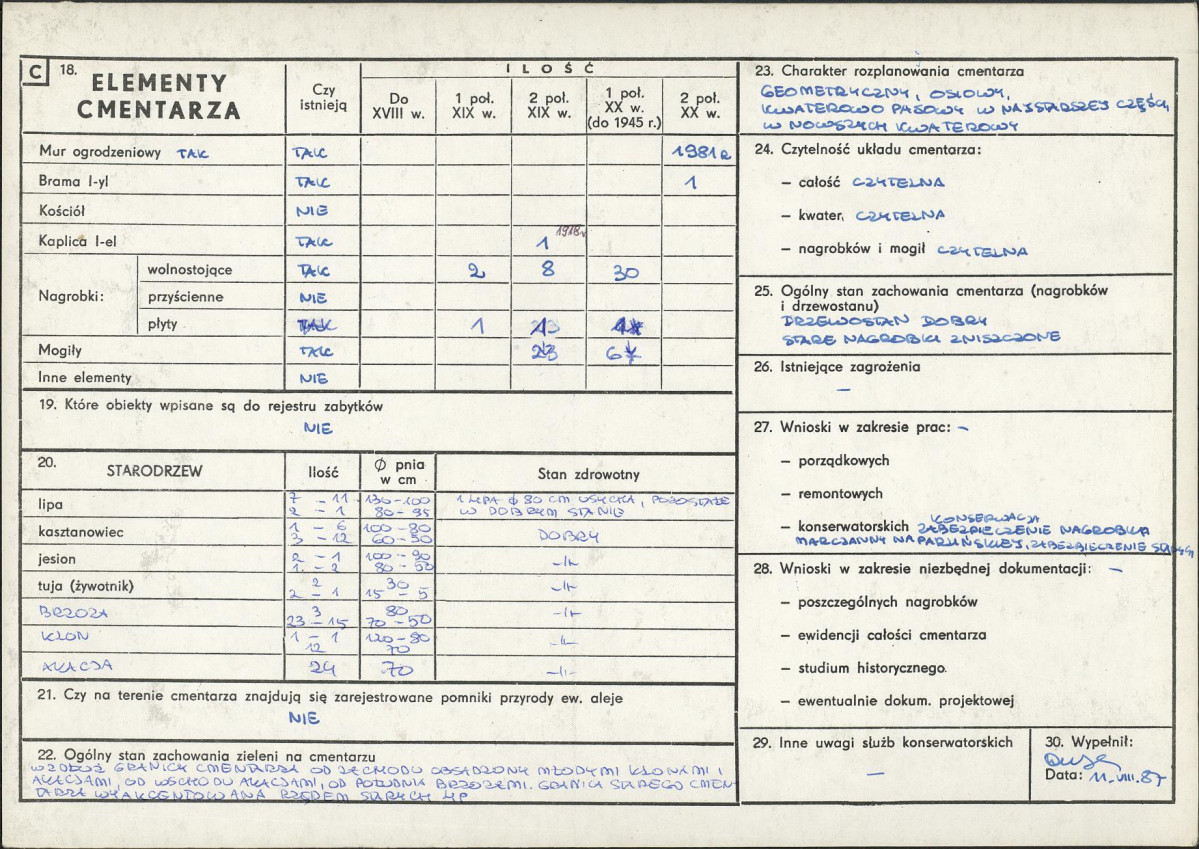 C 18. ELEMENTY CMENTARZA
Czy istnieją
ILOŚĆ
Do XVIII w.
1 poł. XIX w.
2 poł. XIX w.
1 poł. XX w. (do 1945 r.)
2 poł. XX w.
Mur ogrodzeniowy TAK TAK 1981 R
Brama I-yl TAK 1
Kościół NIE
Kaplica I-el TAK 1 1918r
Nagrobki:
wolnostojące TAK 2 8 30
przyścienne NIE
płyty TAK 1
Mogiły TAK
Inne elementy NIE
19. Które obiekty wpisane są do rejestru zabytków
NIE
20. STARODRZEW Ilość Ø pnia w cm Stan zdrowotny
lipa 7 – 11 130–100 1 LIPA ϕ 80 CM USYCHA, POZOSTAŁE
2 – 1 80–95 W DOBRYM STANIE
kasztanowiec 1 – 6 100–80 DOBRY
3 – 12 60–50
jesion 2 – 1 100–90 –||–
1 – 2 80–50
tuja (żywotnik) 2 30 –||–
2 – 1 15 – 5
BRZOZA 3 80 –||–
23 – 15 70–50
KLON 1 – 1 120–80 –||–
12 70
AKACJA 24 70 –||–
21. Czy na terenie cmentarza znajdują się zarejestrowane pomniki przyrody ew. aleje
NIE
22. Ogólny stan zachowania zieleni na cmentarzu
WZDŁUŻ GRANICY CMENTARZA OD ZACHODU OBSADZONY MŁODYMI KLONAMI I
AKACJAMI, OD WSCHODU AKACJAMI, OD POŁUDNIA BRZOZAMI. GRANICA STAREGO CMEN-
TARZA WYAKCENTOWANA RZĘDEM STARYCH LIP
23. Charakter rozplanowania cmentarza
GEOMETRYCZNY, OSIOWY,
KWATEROWO PASOWY W NAJSTARSZEJ CZĘŚCI,
W NOWSZYCH KWATEROWY
24. Czytelność układu cmentarza:
– całość CZYTELNA
– kwater CZYTELNA
– nagrobków i mogił CZYTELNA
25. Ogólny stan zachowania cmentarza (nagrobków
i drzewostanu)
DRZEWOSTAN DOBRY
STARE NAGROBKI ZNISZCZONE
26. Istniejące zagrożenia
–
27. Wnioski w zakresie prac: –
– porządkowych
– remontowych
KONSERWACJA
– konserwatorskich ZABEZPIECZENIE NAGROBKA
MARCJANNY NAPARUŃSKIEJ, ZABEZPIECZENIE
28. Wnioski w zakresie niezbędnej dokumentacji: –
– poszczególnych nagrobków
– ewidencji całości cmentarza
– studium historycznego
– ewentualnie dokum. projektowej
29. Inne uwagi służb konserwatorskich
–
30. Wypełnił:
Data: 11.VIII.87